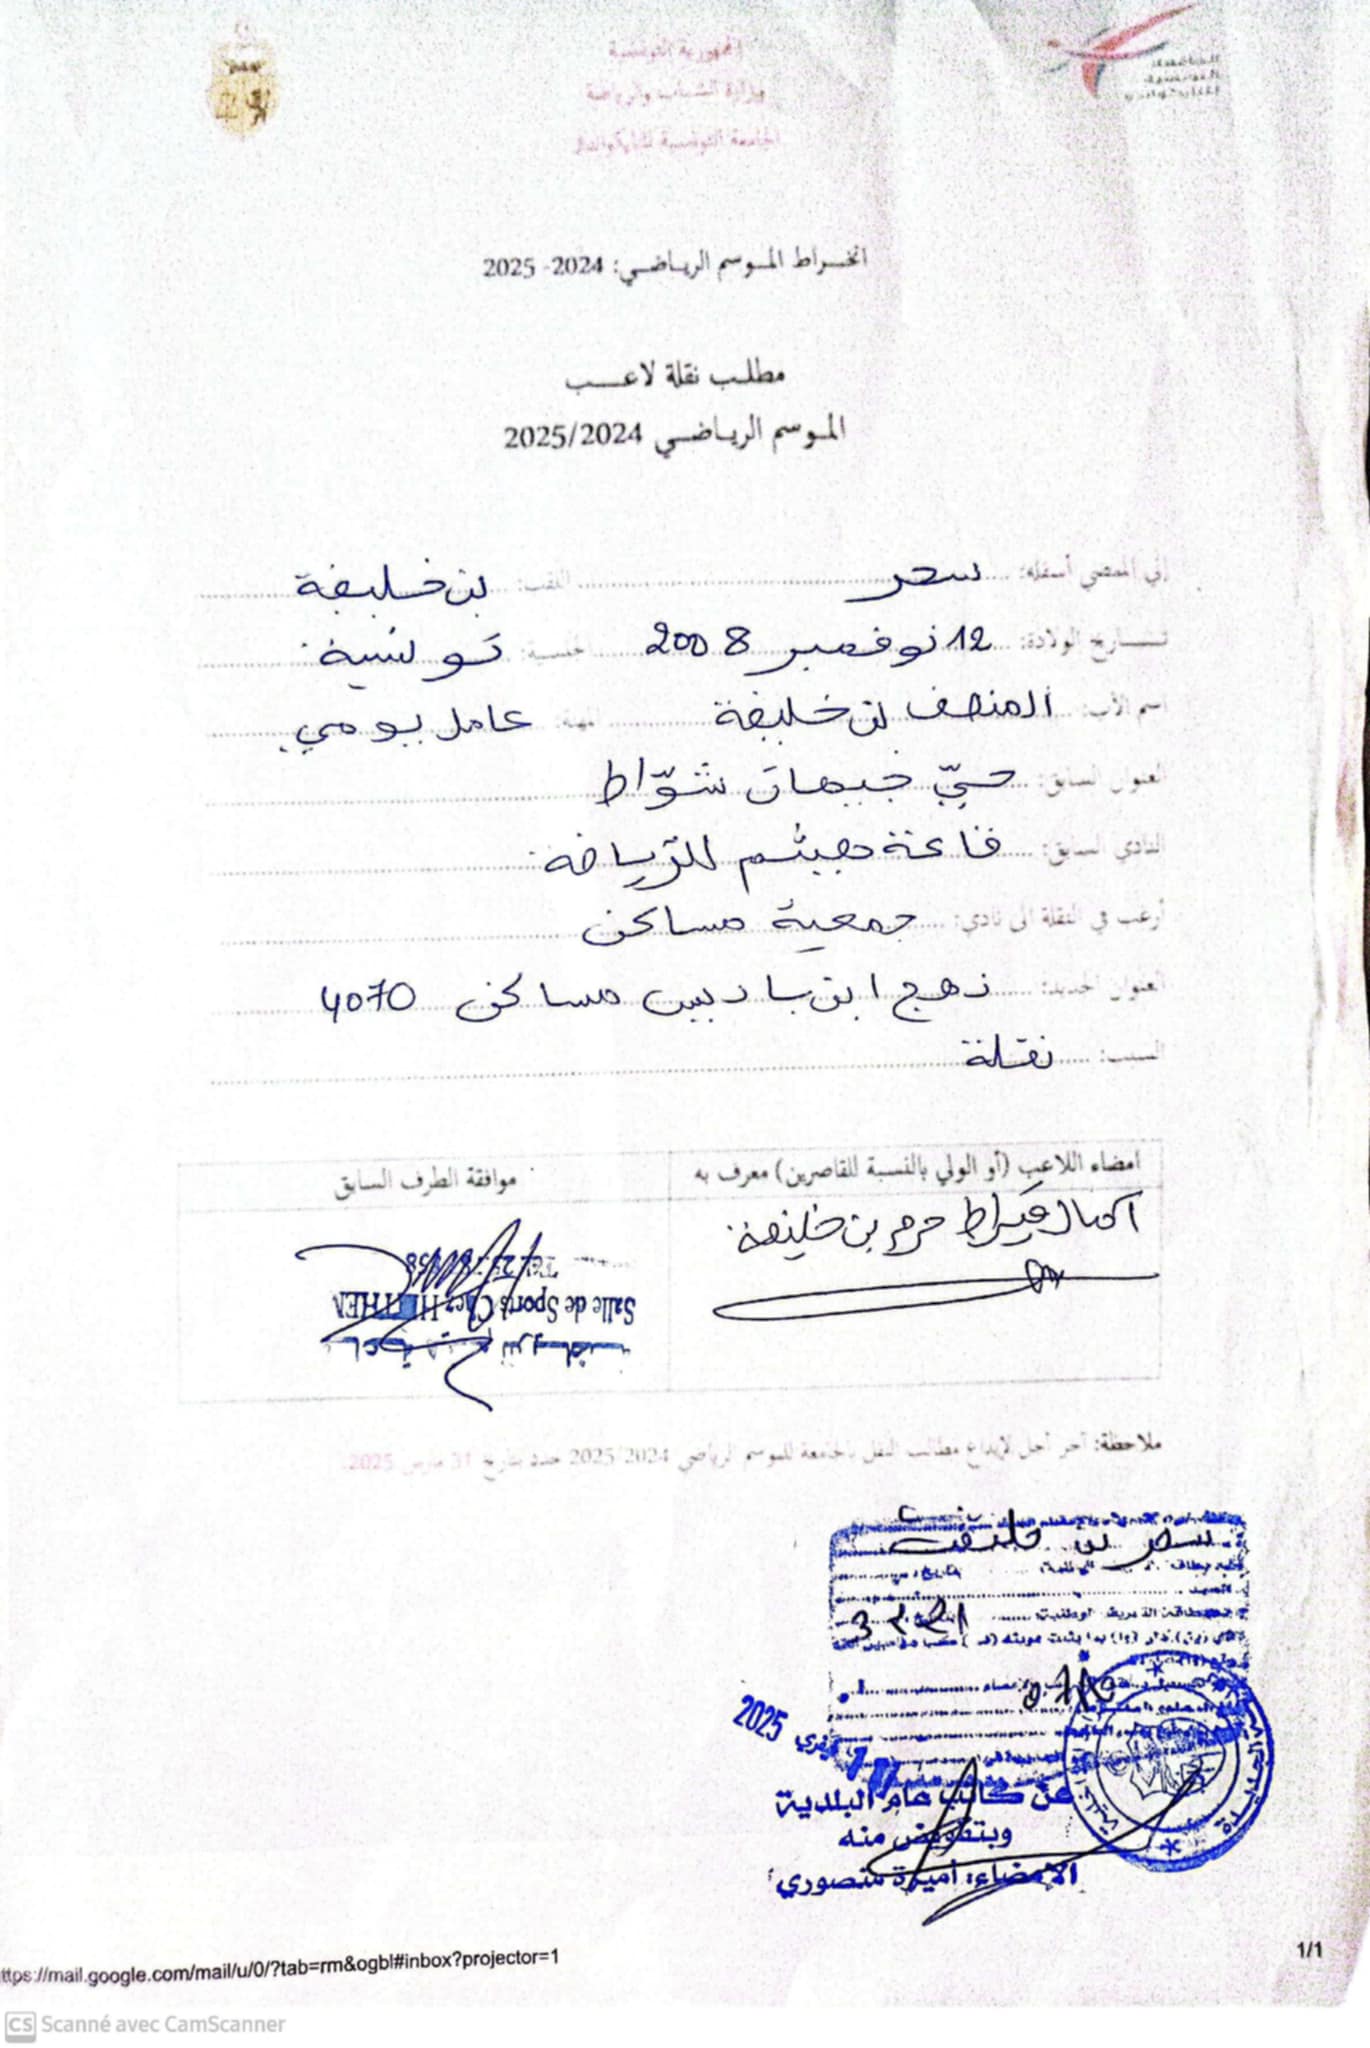 الجمهورية التونسية
وزارة الشباب والرياضة
الجامعة التونسية للتايكواندو
انخراط الموسم الرياضي: 2024- 2025
مطلب نقلة لاعب
الموسم الرياضي 2025/2024
إني الممضي أسفله: سحر اللقب: بن خليفة
تاريخ الولادة: 12 نوفمبر 2008 الجنسية: تونسية
اسم الأب: المنصف بن خليفة المهنة: عامل يومي
العنوان السابق: حيّ جبهان شوّاط
النادي السابق: قاعة هيثم للرّياضة
أرغب في النقلة الى نادي: جمعية مساكن
العنوان الجديد: نهج ابن باديس مساكن 4070
السبب: نقلة
امضاء اللاعب (أو الولي بالنسبة للقاصرين) معرف به
موافقة الطرف السابق
حرم بن خليفة
Salle de Sports Chez HEITHEM
ملاحظة: آخر أجل لإيداع مطالب النقل بالجامعة للموسم الرياضي 2025/2024 حدد بتاريخ 31 مارس 2025.
سحر بن خليفة
فيفري 2025
عن كاتب عام البلدية
وبتفويض منه
الامضاء: أميرة منصوري
ttps://mail.google.com/mail/u/0/?tab=rm&ogbl#inbox?projector=1
1/1
CS Scanné avec CamScanner